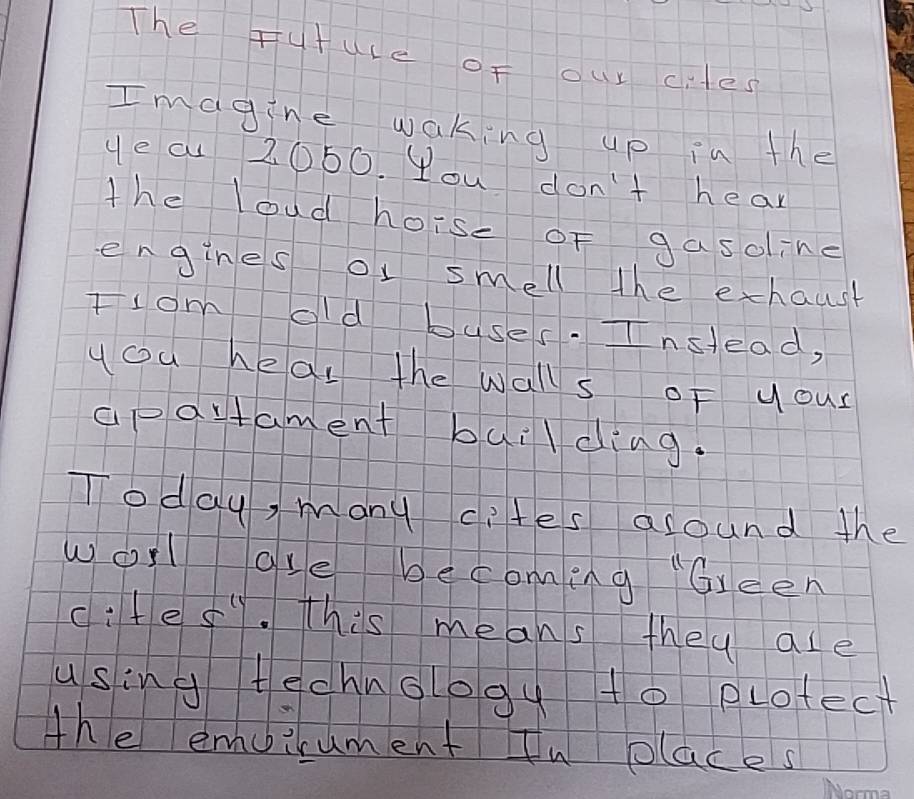 The Future OF our cites
Imagine waking up in the
year 2050. You don't hear
the loud hoise OF gasoline
engines or smell the exhaust
From old buses. Instead,
you hear the walls OF your
apartament building.
Today, many cites around the
worl are becoming "Green
cites". this means they are
using technology to protect
the emvirument In places
Norma